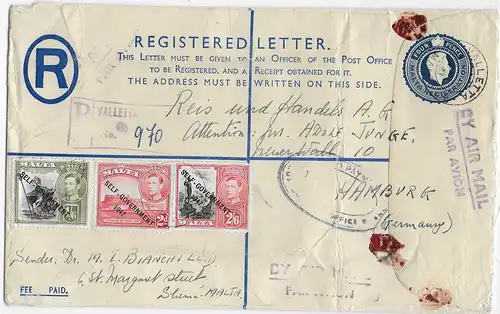 REGISTERED LETTER.
THIS LETTER MUST BE GIVEN TO AN OFFICER OF THE POST OFFICE
TO BE REGISTERED, AND A RECEIPT OBTAINED FOR IT.
THE ADDRESS MUST BE WRITTEN ON THIS SIDE.
R
FOUR PENCE
VALLETTA
R
VALLETTA
No.
970
Reis und Handels A.G
Attention: JUNGE,
10
HAMBURG
(Germany)
BY AIR MAIL
PAR AVION
MALTA
SELF-GOVERNMENT
1947
1/6
MALTA
SELF-GOVERNMENT
1947
MALTA
SELF-GOVERNMENT
1947
2/6
OFFICE
BY AIR MAIL
PAR AVION
Sender: Dr. M. I. BIANCHI
6, St. Margaret street,
Sliema. MALTA.
FEE PAID.